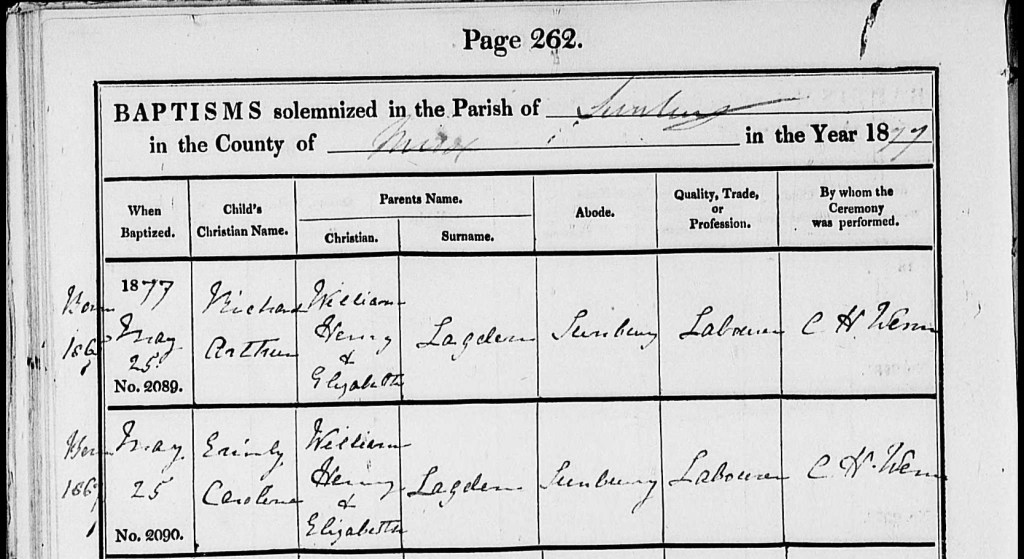 Page 262.
BAPTISMS solemnized in the Parish of Sunbury
in the County of Middx in the Year 1877
When Baptized.
Child's Christian Name.
Parents Name.
Christian.
Surname.
Abode.
Quality, Trade, or Profession.
By whom the Ceremony was performed.
Born
1877
May
25
No. 2089.
Richard
Arthur
William
Henry
&
Elizabeth
Lagden
Sunbury
Labourer
C H Venn
Born
May
25
No. 2090.
Emily
Caroline
William
Henry
&
Elizabeth
Lagden
Sunbury
Labourer
C H. Venn